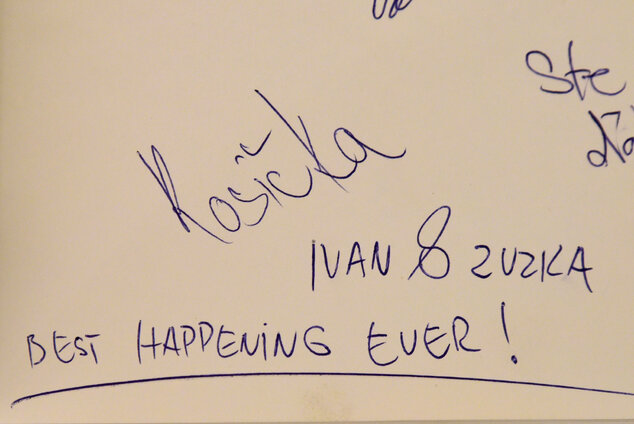 Ste
Košička
IVAN & ZUZKA
BEST HAPPENING EVER!